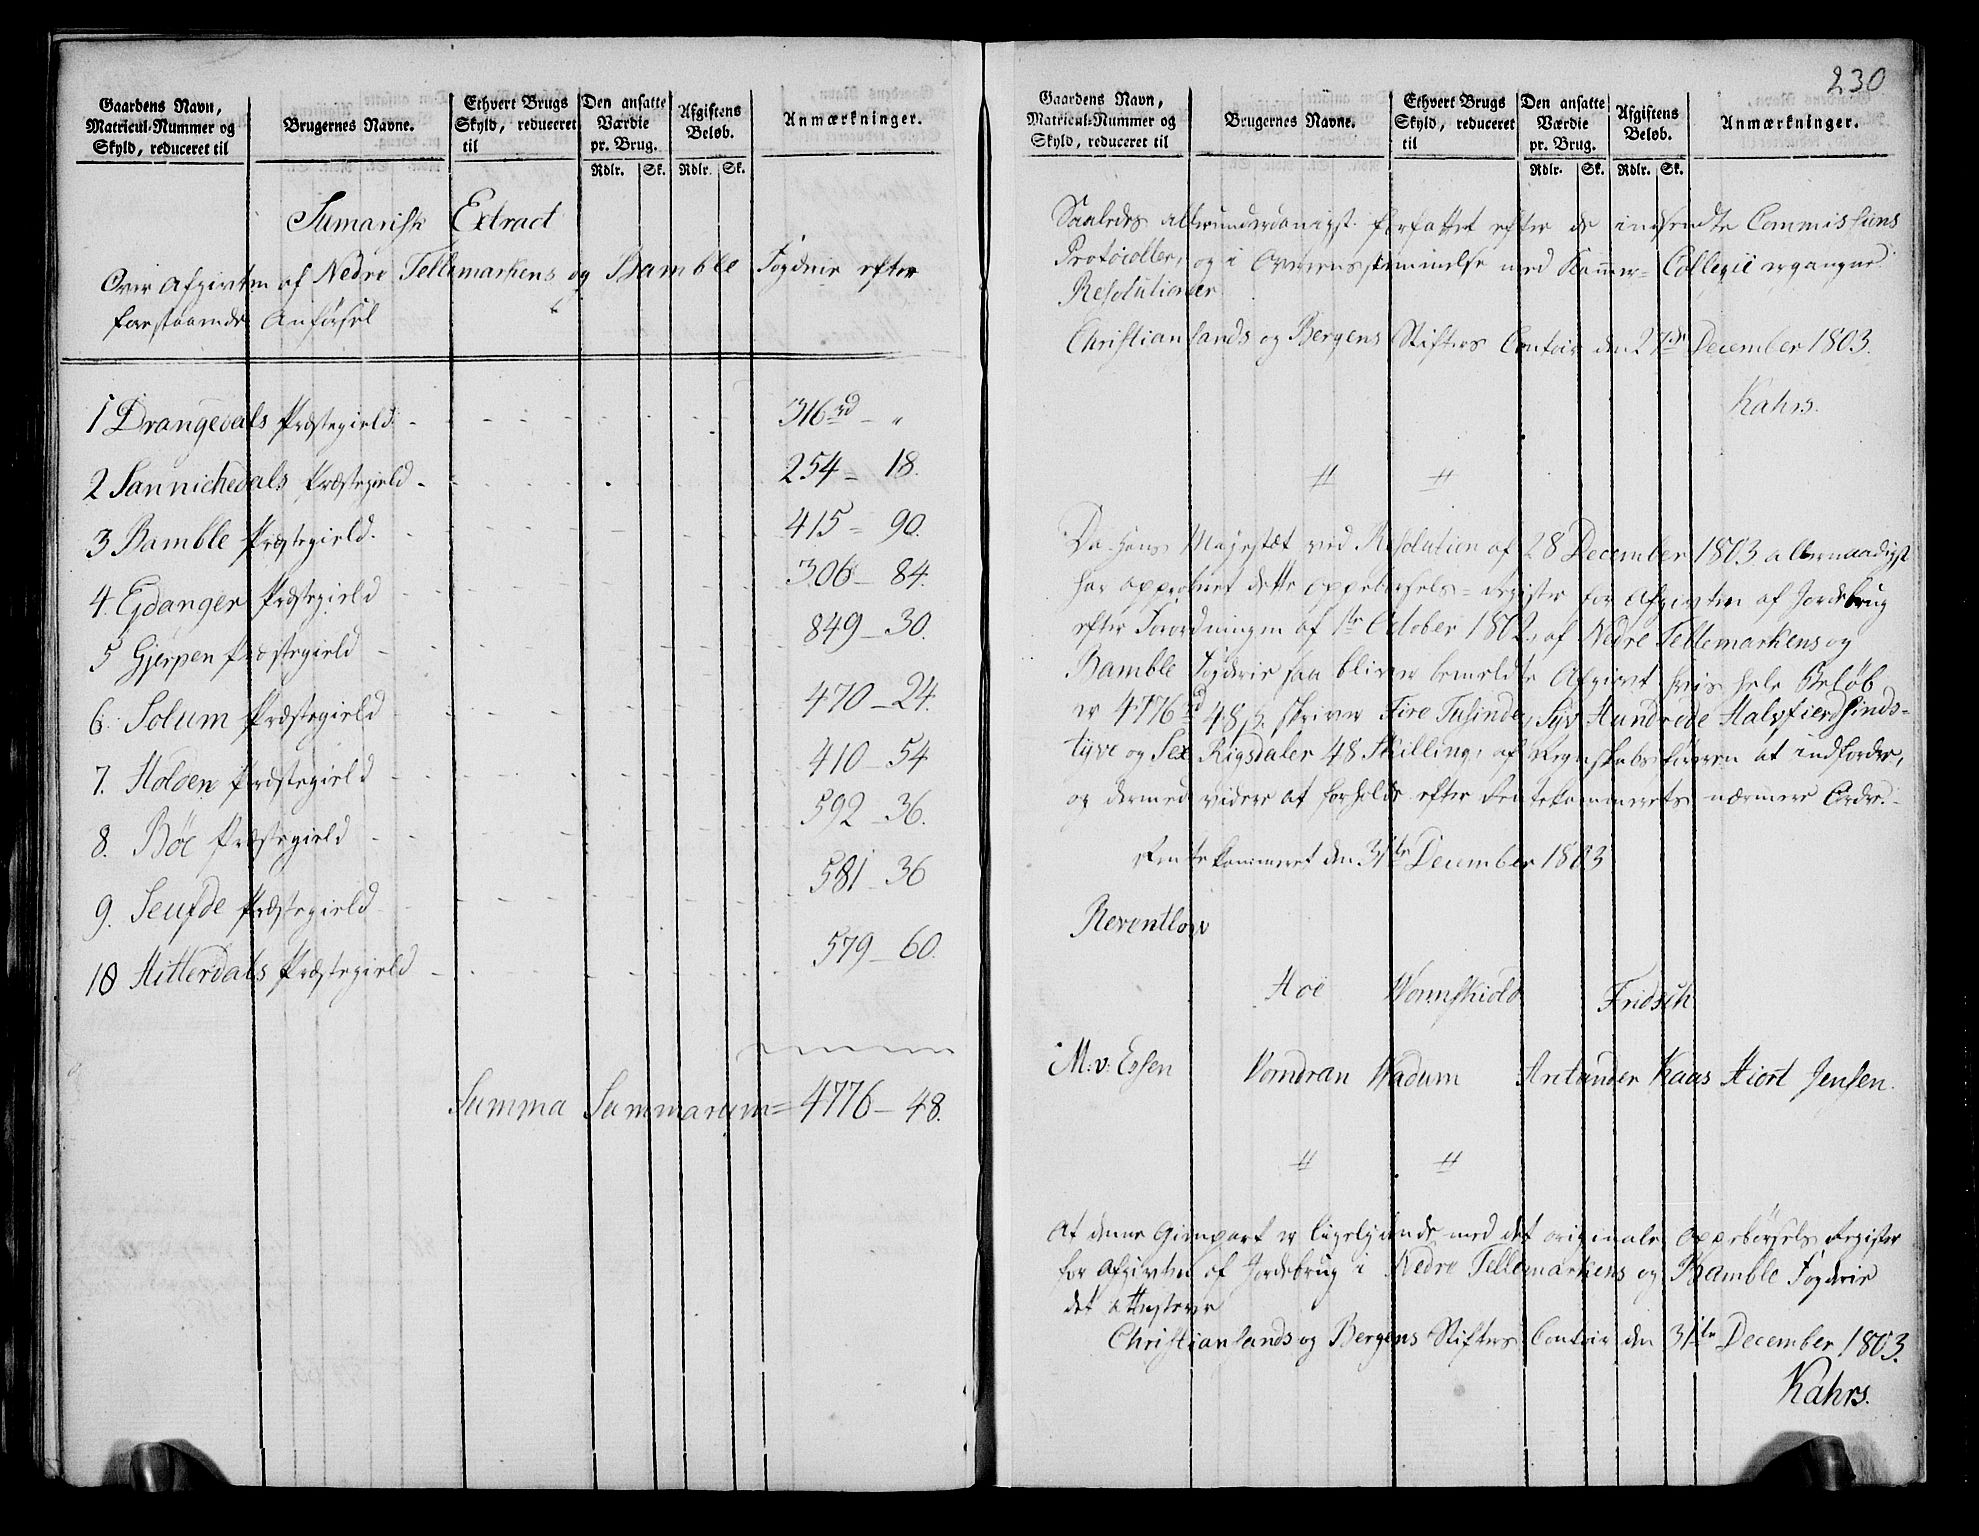 Gaardens Navn,
Matricul-Nummer og
Skyld, reduceret til
Brugernes Navne.
Ethvert Brugs
Skyld, reduceret
til
Den ansatte
Værdie
pr. Brug.
Rdlr. Sk.
Afgiftens
Beløb.
Rdlr. Sk.
Anmærkninger.
Sumarisk Extract
Over Afgivten af Nedre Tellemarkens og Bamble Fogderie efter
forestaaende Anførsel
1 Drangedals Præstegield. - 316 rd - "
2 Sannichedals Præstegield - 254 - 18.
3 Bamble Præstegield. - 415 - 90.
4. Eydanger Præstegield - 306 - 84.
5 Gjerpen Præstegield - 849 - 30.
6. Solum Præstegield - 470 - 24.
7. Holden Præstegield - 410 - 54
8. Bøe Præstegield - 592 - 36.
9. Seufde Præstegield - 581 - 36
10 Hitterdals Præstegield - 579 - 60.
Summa Summarum = 4776 - 48.
230
Gaardens Navn,
Matricul-Nummer og
Skyld, reduceret til
Brugernes Navne.
Ethvert Brugs
Skyld, reduceret
til
Den ansatte
Værdie
pr. Brug.
Rdlr. Sk.
Afgiftens
Beløb.
Rdlr. Sk.
Anmærkninger.
Saaledes allerunderdanigst forfattet efter de indsendte Commissions
Protocoller, og i Overensstemmelse med Kammer-Collegii ergangne
Resolutioner
Christiansands og Bergens Stifters Contoir den 27de December 1803.
Kahrs.
Da Hans Majestæt ved Resolution af 28 December 1803 allernaadigst
har approberet dette Oppebørsels-register for Afgivten af Jordebrug
efter Forordningen af 1te October 1802, af Nedre Tellemarkens og
Bamble Fogderie saa bliver bemeldte Afgivt hvis hele Beløb
er 4776 rd 48 s. skriver Fire Tusinde, Syv Hundrede Halvfierdsinds-
tyve og Sex Rigsdaler 48 Skilling, af Regnskabsføreren at indfordre,
og dermed videre at forholde efter Rentekammerets nærmere Ordre.
Rentekammeret den 31te December 1803
Reventlow
Hoe Wormskiold Fridsch
M: v: Essen Vondran Wadum Antander Kaas Hiort Jensen.
At denne Gienpart er ligelydende med det originale Oppebørsels Register
for Afgivten af Jordebrug i Nedre Tellemarkens og Bamble Fogderie
det attesterer
Christiansands og Bergens Stifters Contoir den 31te December 1803.
Kahrs.